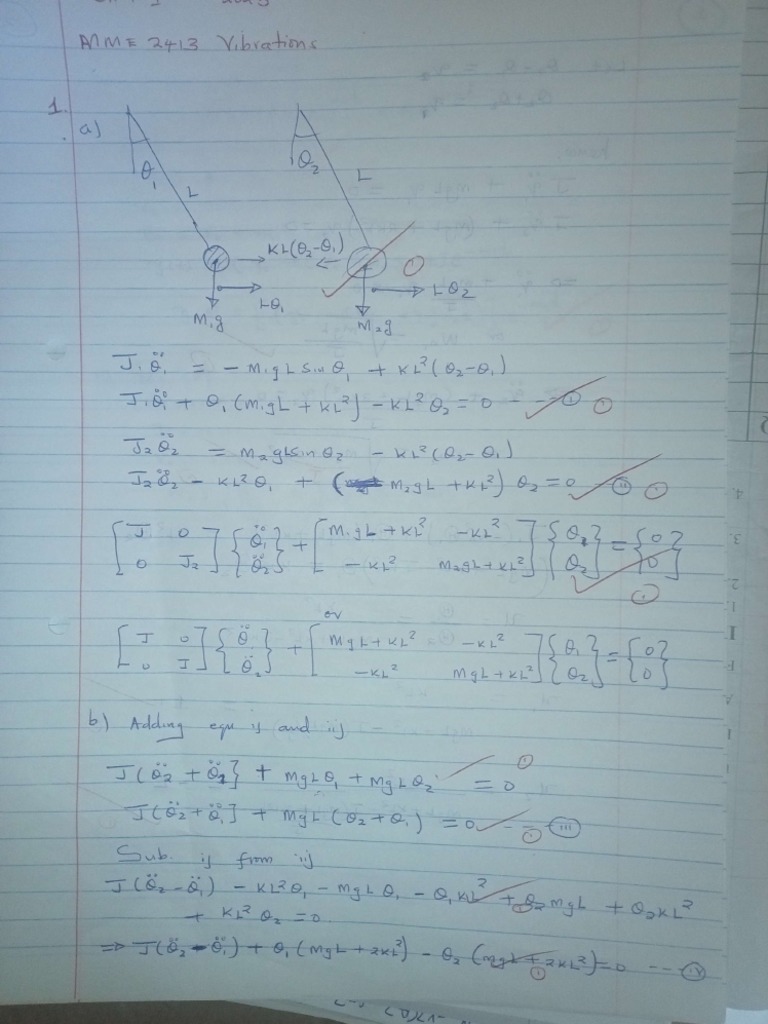 MME 2413 Vibrations
1.
a)
θ₁ L θ₂ L
KL(θ₂-θ₁) ①
Lθ₁ Lθ₂
M₁g M₂g
J₁θ̈₁ = - M₁gL sin θ₁ + KL²(θ₂-θ₁)
J₁θ̈₁ + θ₁(M₁gL + KL²) - KL²θ₂ = 0 - - ① ①
J₂θ̈₂ = M₂gLsin θ₂ - KL²(θ₂-θ₁)
J₂θ̈₂ - KL²θ₁ + ( M₂gL + KL²) θ₂ = 0 - ⑪ ①
[J 0; 0 J₂] {θ̈₁; θ̈₂} + [M₁gL + KL² -KL²; -KL² M₂gL + KL²] {θ₁; θ₂} = {0; 0} ①
or
[J 0; 0 J] {θ̈; θ̈₂} + [MgL + KL² -KL²; -KL² MgL + KL²] {θ₁; θ₂} = {0; 0}
b) Adding equ i) and ii)
J(θ̈₂ + θ̈₁} + MgLθ₁ + MgLθ₂ = 0 ①
J(θ̈₂ + θ̈₁] + MgL(θ₂ + θ₁) = 0 - - (iii) ①
Sub. i) from ii)
J(θ̈₂ - θ̈₁) - KL²θ₁ - MgLθ₁ - θ₁KL² + θ₂MgL + θ₂KL²
+ KL²θ₂ = 0
⇒ J(θ̈₂ - θ̈₁) + θ₁(MgL + 2KL²) - θ₂(MgL + 2KL²) = 0 - - - (iv) ①